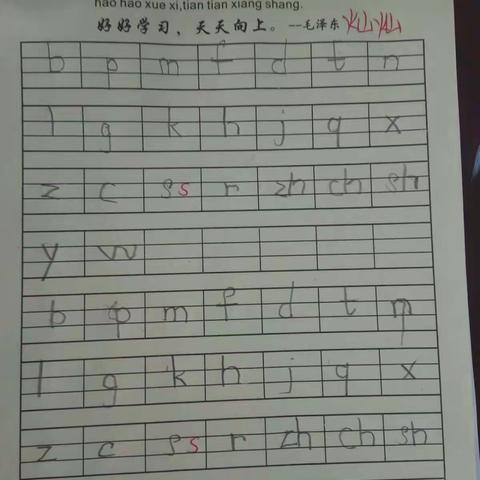 hao hao xue xi,tian tian xiang shang.
好好学习，天天向上。--毛泽东 灿灿
b p m f d t n
l g k h j q x
z c s s r zh ch sh
y w
b p m f d t n
l g k h j q x
z c s s r zh ch sh